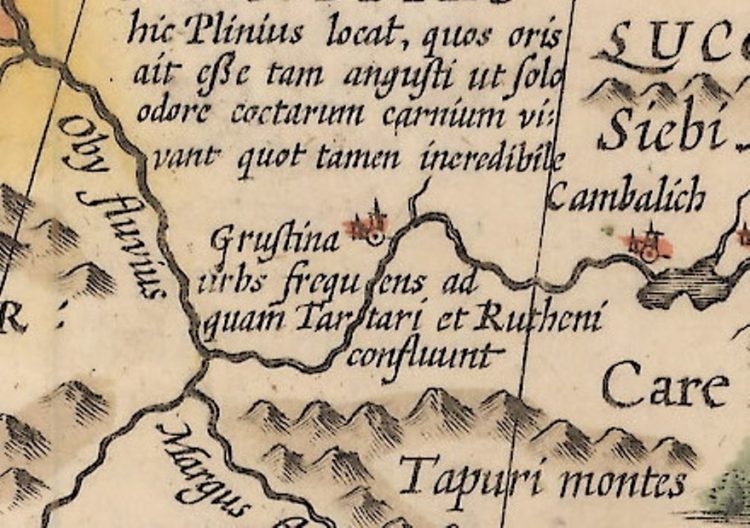 hic Plinius locat, quos oris
ait eſſe tam anguſti ut ſolo
odore coctarum carnium vi:
vant quot tamen incredibile
LUCO
Siebi
Cambalich
Oby fluvius
Gruſtina
urbs frequens ad
quam Tartari et Rutheni
confluunt
R :
Care
Margus
Tapuri montes